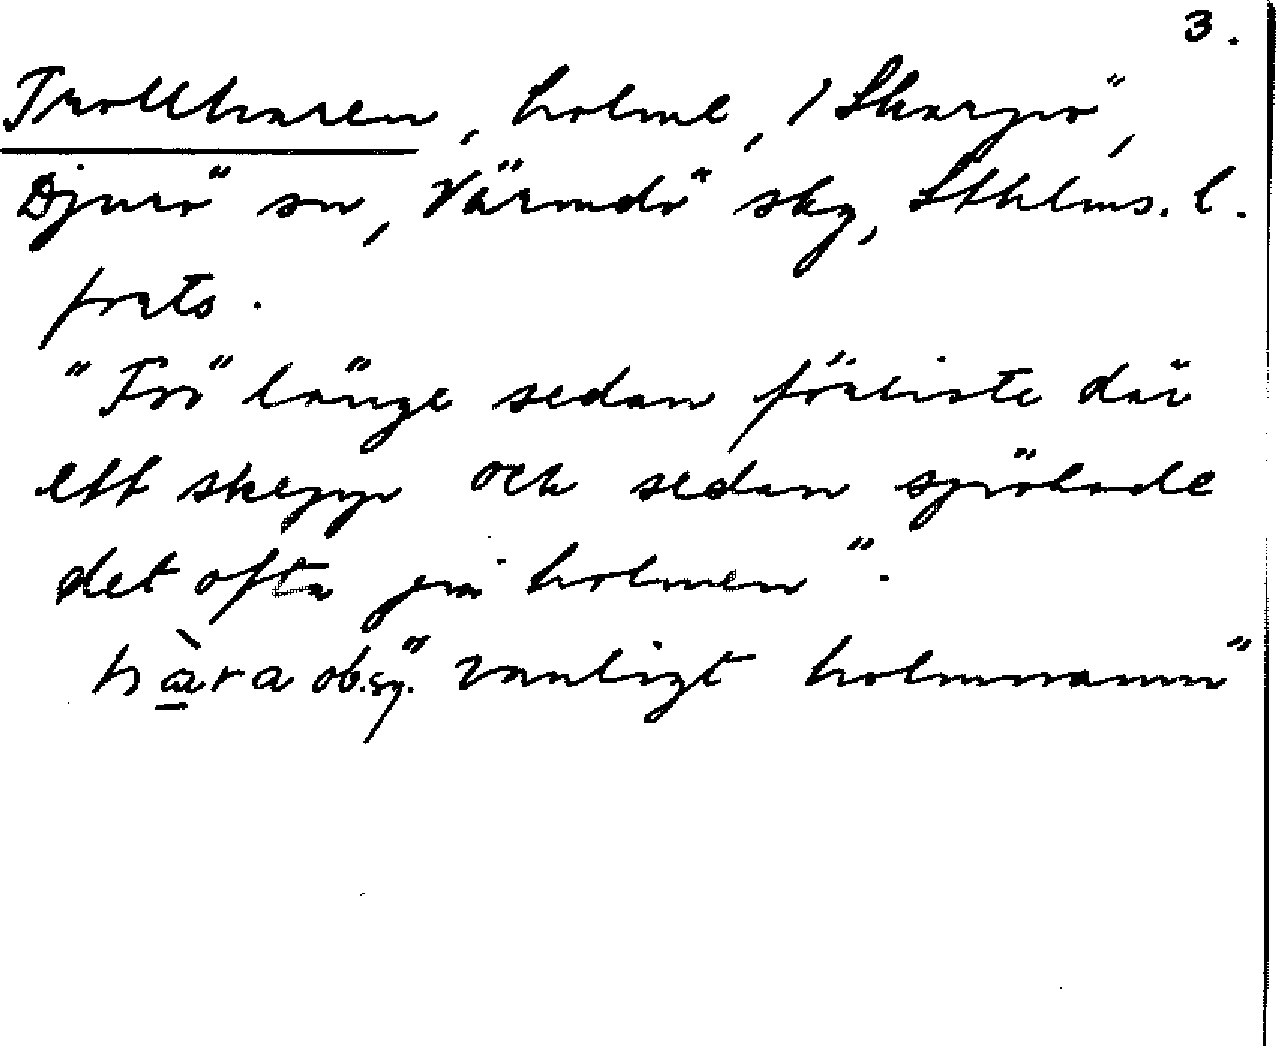 3.
Trollharen, holme, 1 Skarpö,
Djurö sn, Värmdö skg, Sthlms. l.
forts.
"För länge sedan förliste där
ett skepp och sedan spökade
det ofta på holmen".
hàra ob.sg. "vanligt holmnamn"